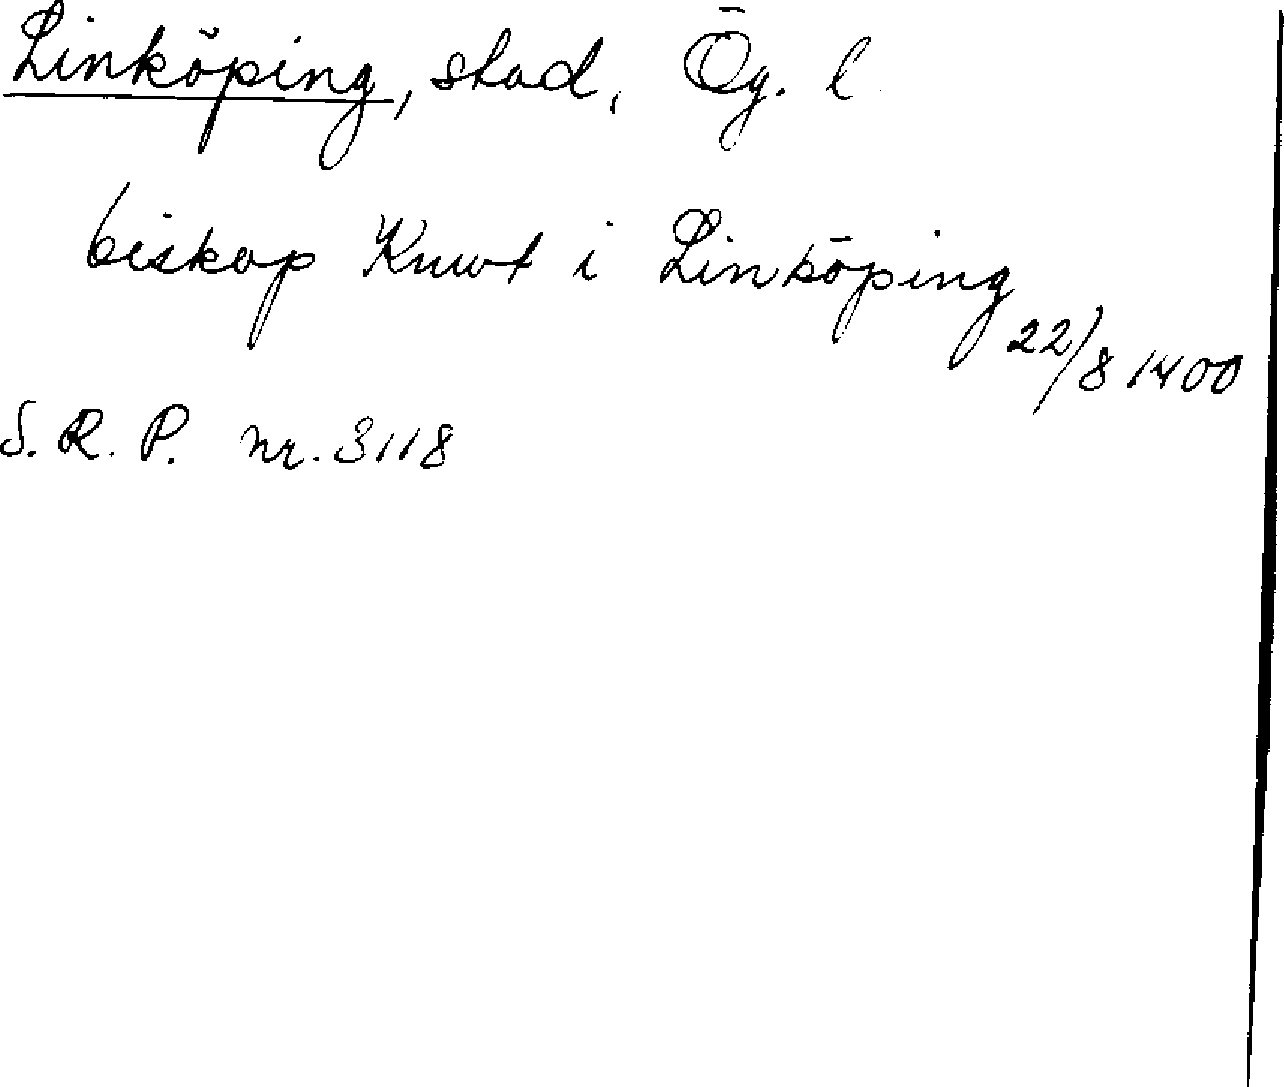 Linköping, stad, Ög. l
biskop Knut i Linköping
22/8 1400
S. R. P. nr. 3118